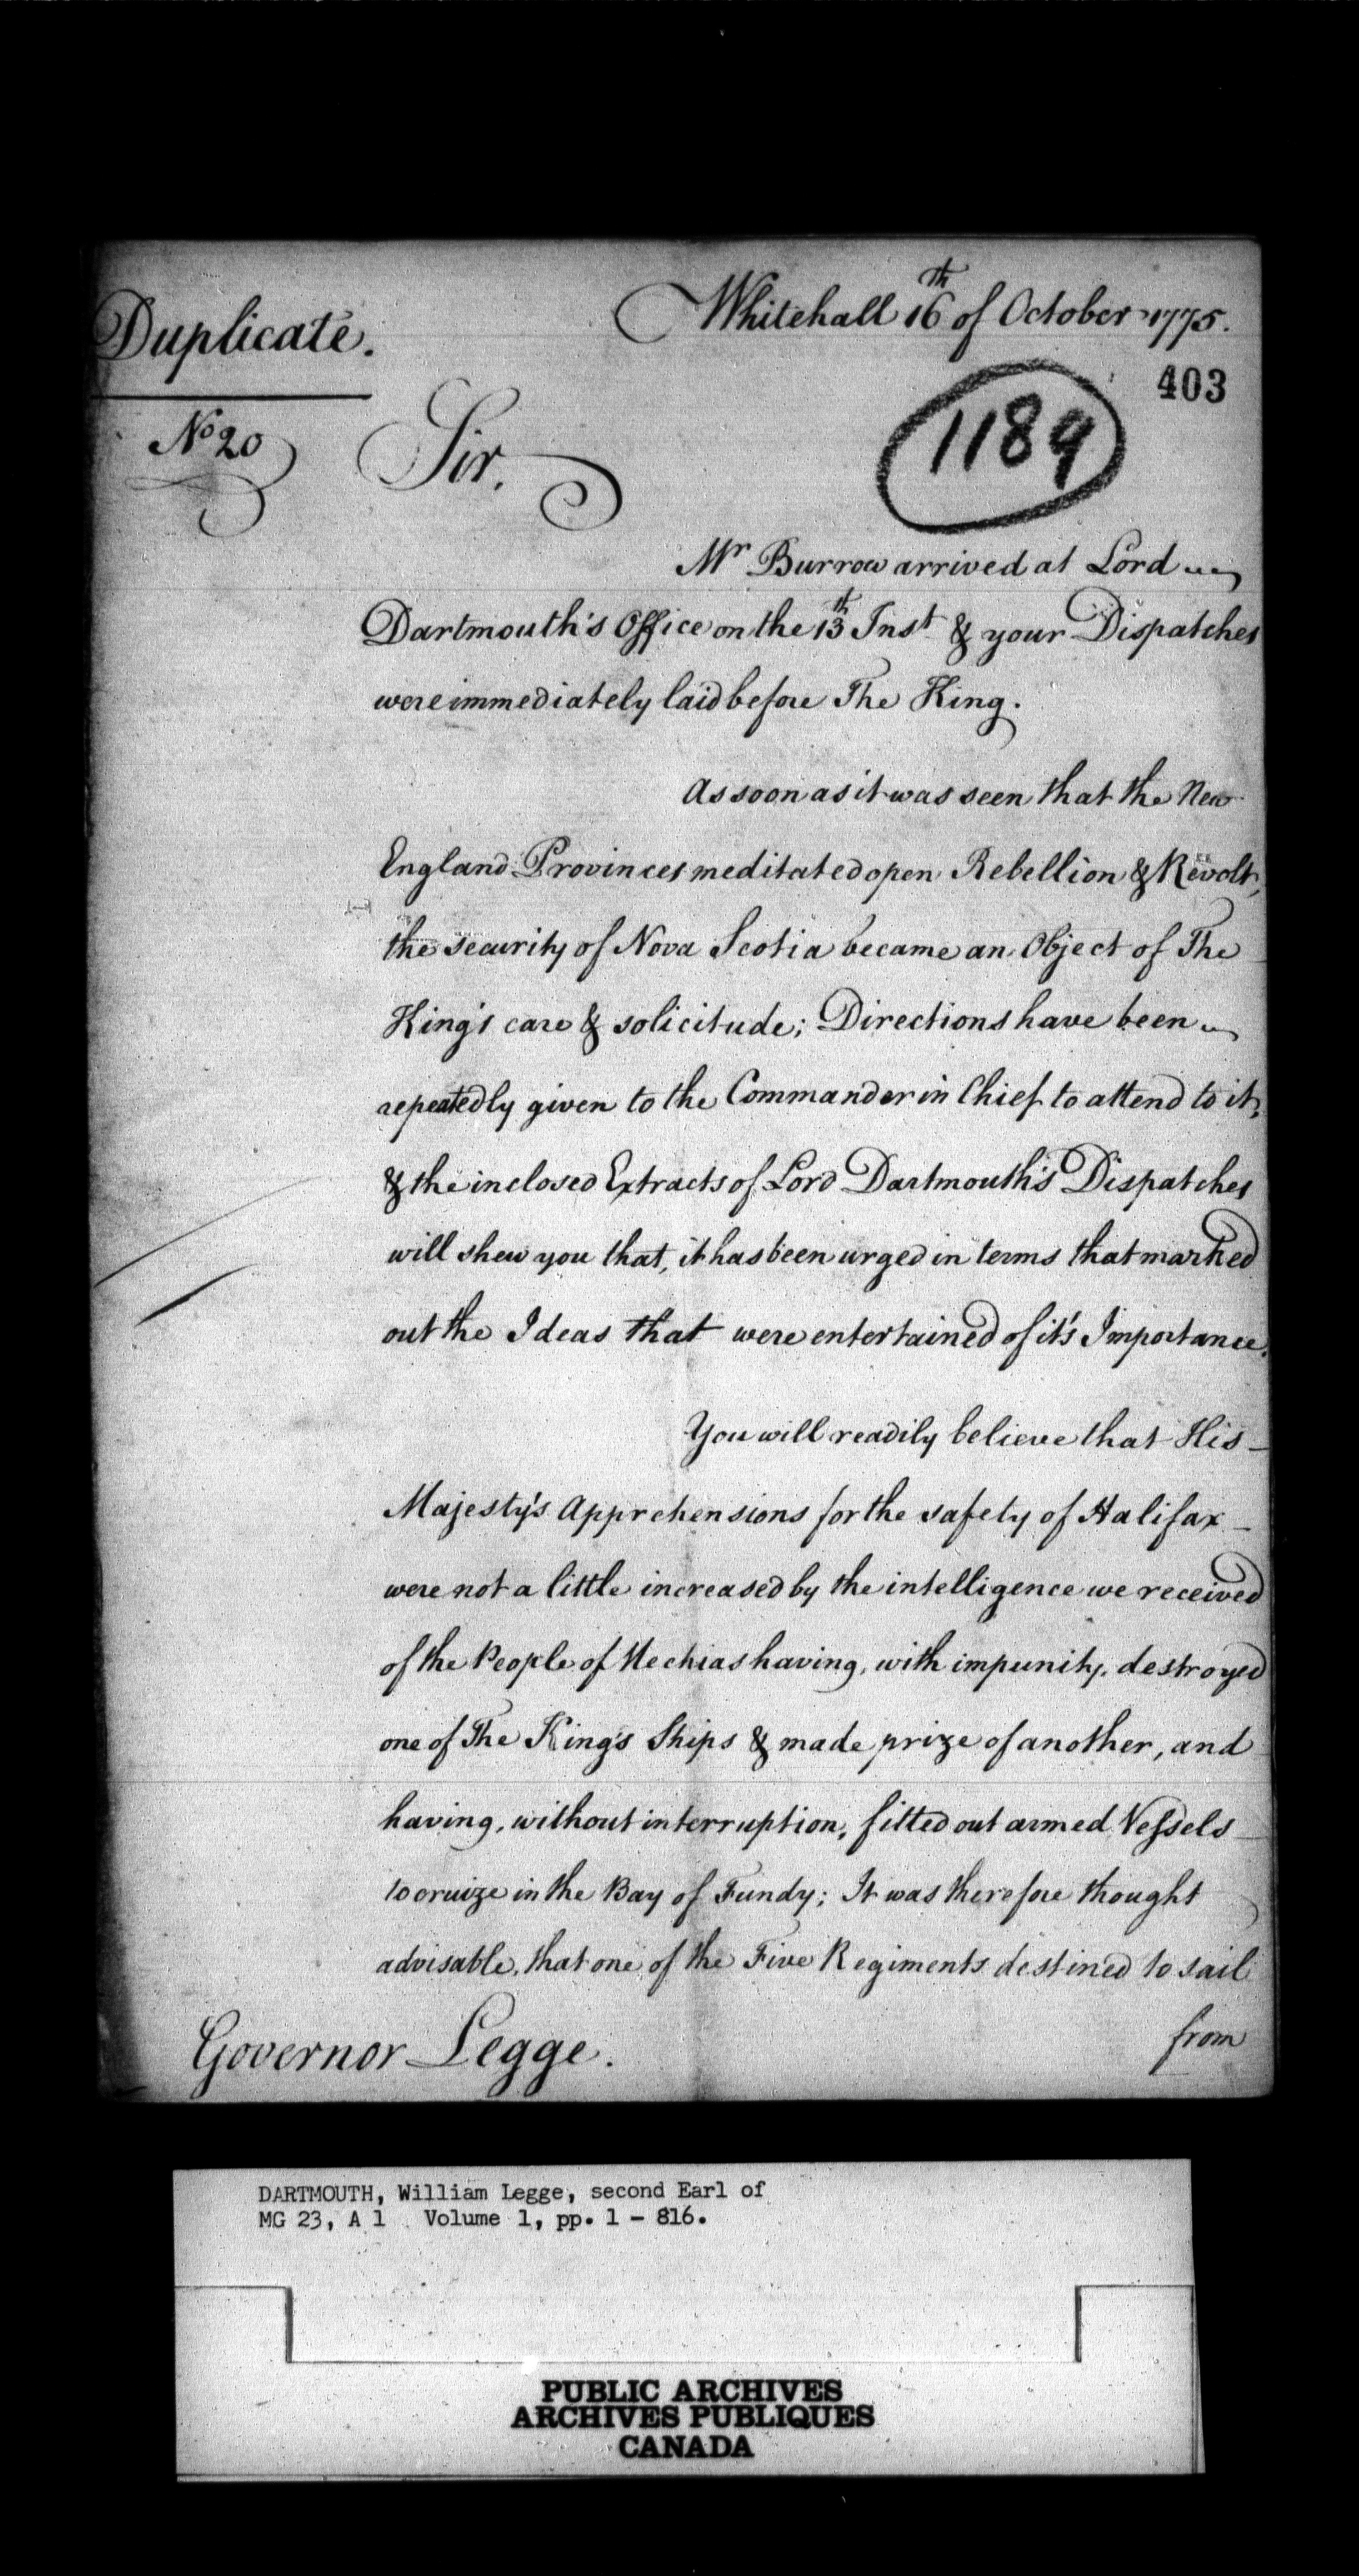 Duplicate.
Whitehall 16th of October 1775.
403
1189
No 20
Sir,
Mr Burrow arrived at Lord
Dartmouth's Office on the 13th Inst & your Dispatches
were immediately laid before The King.
As soon as it was seen that the New
England Provinces meditated open Rebellion & Revolt,
the security of Nova Scotia became an Object of The
King's care & solicitude; Directions have been
repeatedly given to the Commander in Chief to attend to it,
& the inclosed Extracts of Lord Dartmouth's Dispatches
will shew you that, it has been urged in terms that marked
out the Ideas that were entertained of it's Importance.
You will readily believe that His
Majesty's Apprehensions for the safety of Halifax
were not a little increased by the intelligence we received
of the People of Mechias having, with impunity, destroyed
one of The King's Ships & made prize of another, and
having, without interruption, fitted out armed Vessels
to cruize in the Bay of Fundy; It was therefore thought
advisable, that one of the Five Regiments destined to sail
from
Governor Legge.
DARTMOUTH, William Legge, second Earl of
MG 23, A 1 Volume 1, pp. 1 - 816.
PUBLIC ARCHIVES
ARCHIVES PUBLIQUES
CANADA